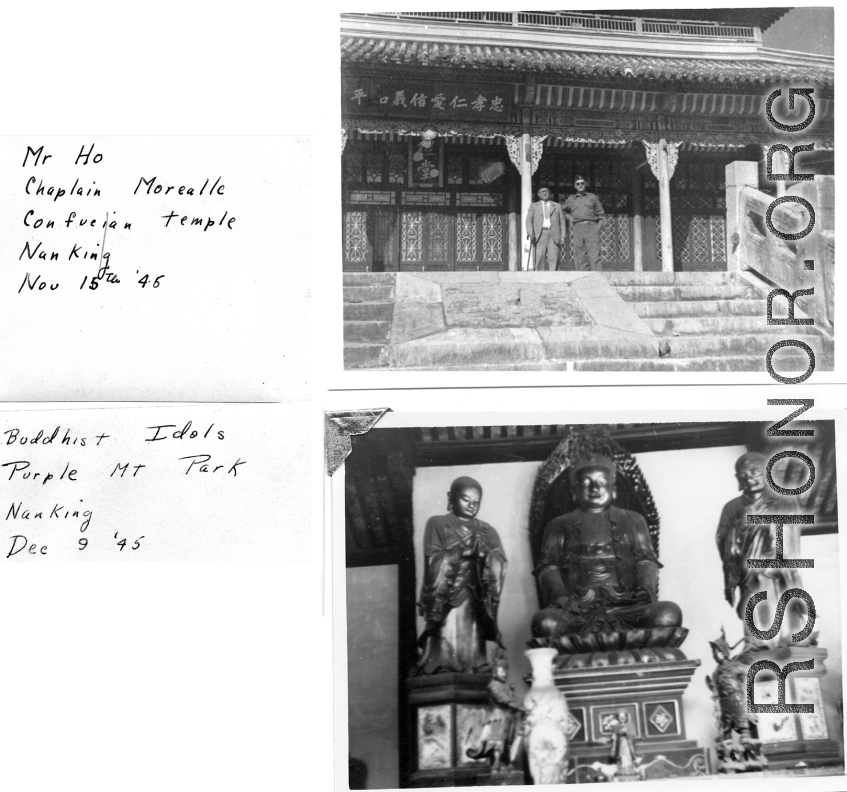 Mr Ho
Chaplain Morealle
Confucian temple
Nanking
Nov 15th '45
忠孝仁愛信義和平
堂
Buddhist Idols
Purple Mt Park
Nanking
Dec 9 '45
RSHONOR.ORG